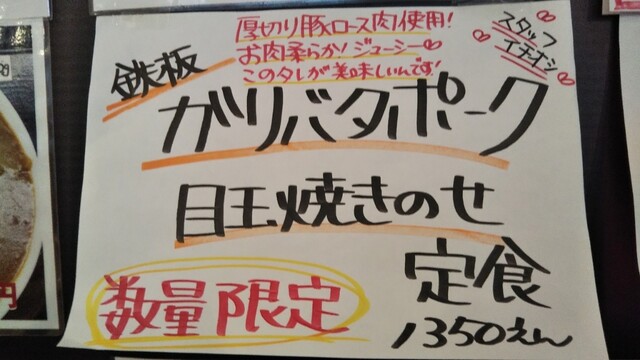 厚切り豚ロース肉使用!
お肉柔らか!ジューシー♡
このタレが美味しいんです!
スタッフ
イチオシ
鉄板
ガリバタポーク
目玉焼きのせ
定食
数量限定
1350えん
円